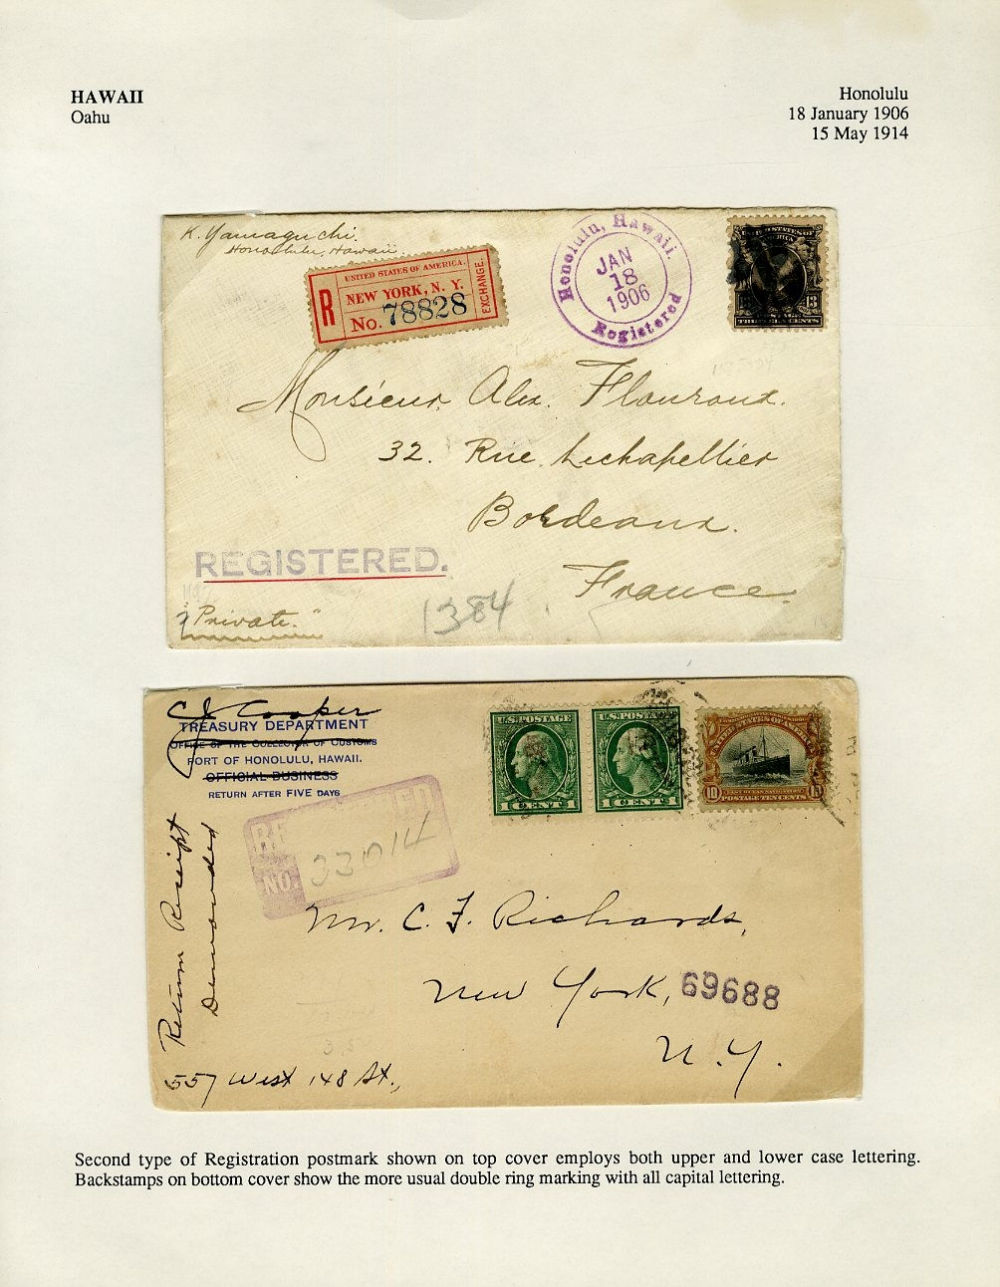 HAWAII
Oahu
Honolulu
18 January 1906
15 May 1914
K. Yamaguchi.
Honolulu, Hawaii
UNITED STATES OF AMERICA.
R
NEW YORK, N. Y.
No. 78828
EXCHANGE.
Honolulu, Hawaii.
JAN
18
1906
Registered
13 13
Monsieur Alex.
32. Rue Lechapellier
Bordeaux.
France.
REGISTERED.
"Private."
1384
C J Cooper
TREASURY DEPARTMENT
OFFICE OF THE COLLECTOR OF CUSTOMS
PORT OF HONOLULU, HAWAII.
OFFICIAL BUSINESS
RETURN AFTER FIVE DAYS
U.S. POSTAGE
1 CENT 1
U.S. POSTAGE
1 CENT 1
UNITED STATES OF AMERICA
FAST OCEAN NAVIGATION
10 10
POSTAGE TEN CENTS
NO. 23014
Return Receipt
Demanded
Mr. C. F. Richards,
New York, 69688
N. Y.
557 West 148 St.,
Second type of Registration postmark shown on top cover employs both upper and lower case lettering.
Backstamps on bottom cover show the more usual double ring marking with all capital lettering.